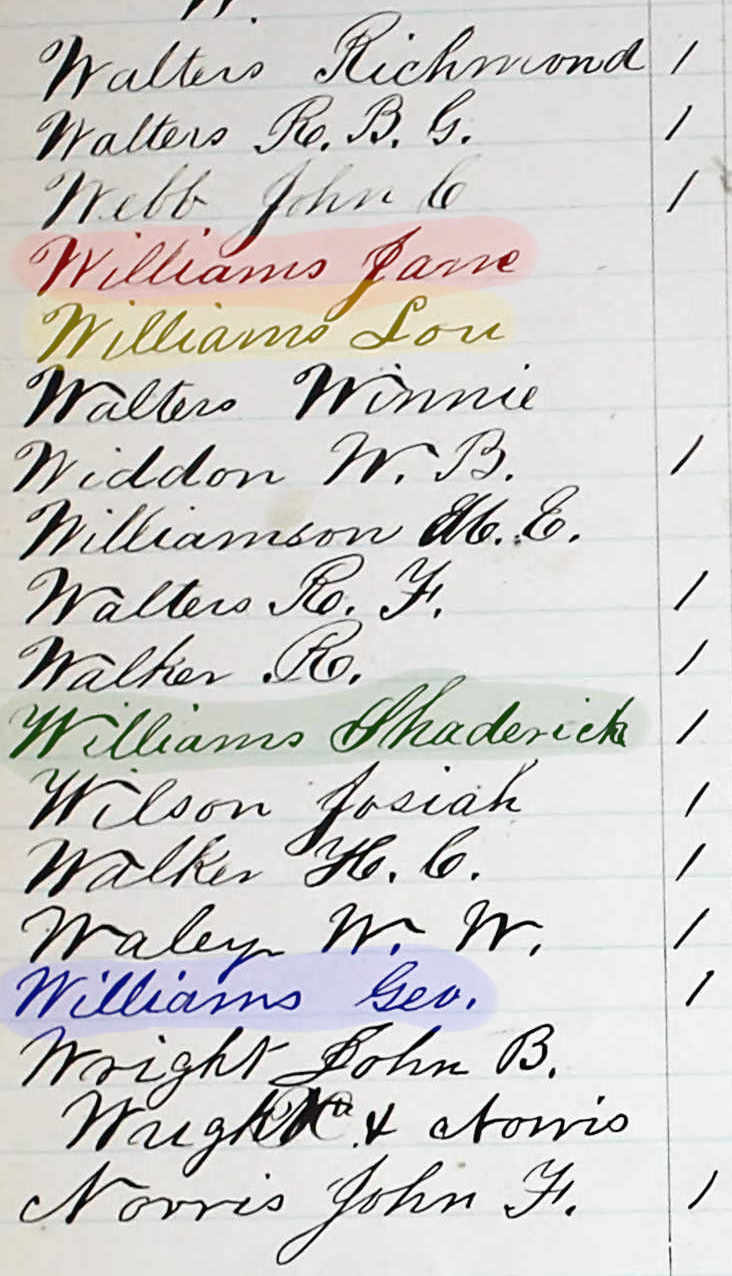 W.
Walters Richmond 1
Walters R. B. G. 1
Webb John C 1
Williams Jane
Williams Lou
Walters Winnie
Widdon W. B. 1
Williamson M. E.
Walters R. F. 1
Walker R. 1
Williams Shaderick 1
Wilson Josiah 1
Walker H. C. 1
Waley W. W. 1
Williams Geo. 1
Wright John B.
& Norris
Norris John F. 1